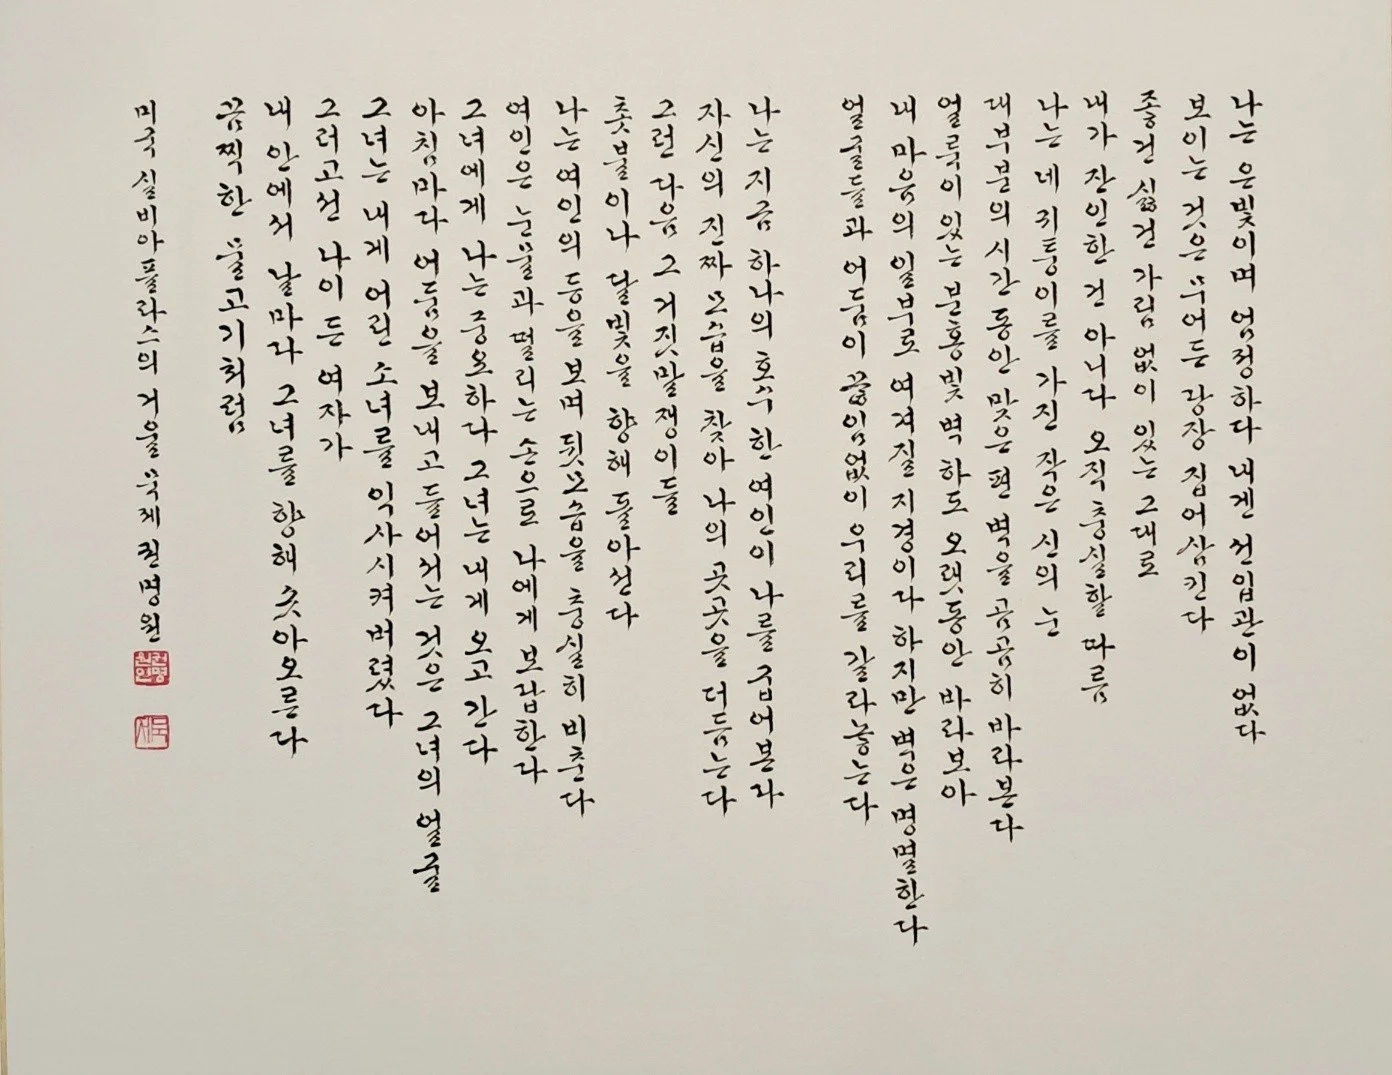 나는 은빛이며 엄정하다 내겐 선입관이 없다
보이는 것은 무어든 랑장 집어삼킨다
좋건 싫건 가림 없이 있는 그대로
내가 잔인한 건 아니다 오직 충실할 따름
나는 네 귀퉁이를 가진 작은 신의 눈
대부분의 시간 동안 맞은 편 벽을 곰곰히 바라본다
얼룩이 있는 분홍빛 벽 하도 오랫동안 바라보아
내 마음의 일부로 여겨질 지경이다 하지만 벽은 명멸한다
얼굴들과 어둠이 끊임없이 우리를 갈라놓는다
나는 지금 하나의 호수 한 여인이 나를 굽어본다
자신의 진짜 모습을 찾아 나의 곳곳을 더듬는다
그런 다음 그 거짓말쟁이들
촛불이나 달빛을 향해 돌아선다
나는 여인의 등을 보며 뒷모습을 충실히 비춘다
여인은 눈물과 떨리는 손으로 나에게 보답한다
그녀에게 나는 중요하다 그녀는 내게 오고 간다
아침마다 어둠을 보내고 들어서는 것은 그녀의 얼굴
그녀는 내게 어린 소녀를 익사시켜 버렸다
그러고선 나이 든 여자가
내 안에서 날마다 그녀를 향해 솟아오른다
끔찍한 물고기처럼
미국 실비아 플라스의 거울 묵제 권명원
권명원인
묵제